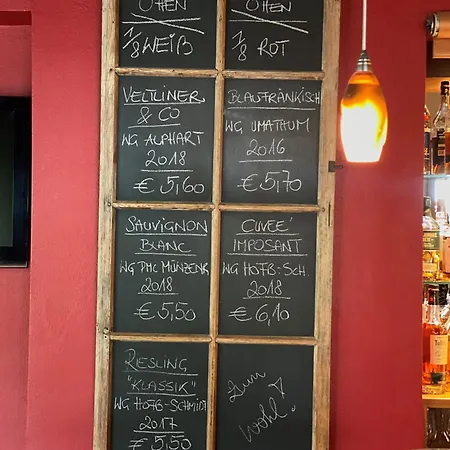 OFFEN
1/8 WEIß
OFFEN
1/8 ROT
VELTLINER
& CO
WG ALPHART
2018
€ 5,60
BLAUFRÄNKISCH
WG UMATHUM
2016
€ 5,70
SAUVIGNON
BLANC
WG PHC MÜNZENR
2018
€ 5,50
CUVEÉ
IMPOSANT
WG HOFB-SCH.
2018
€ 6,10
RIESLING
"KLASSIK"
WG HOFB-SCHMIDT
2017
€ 5,50
Zum
Wohl!